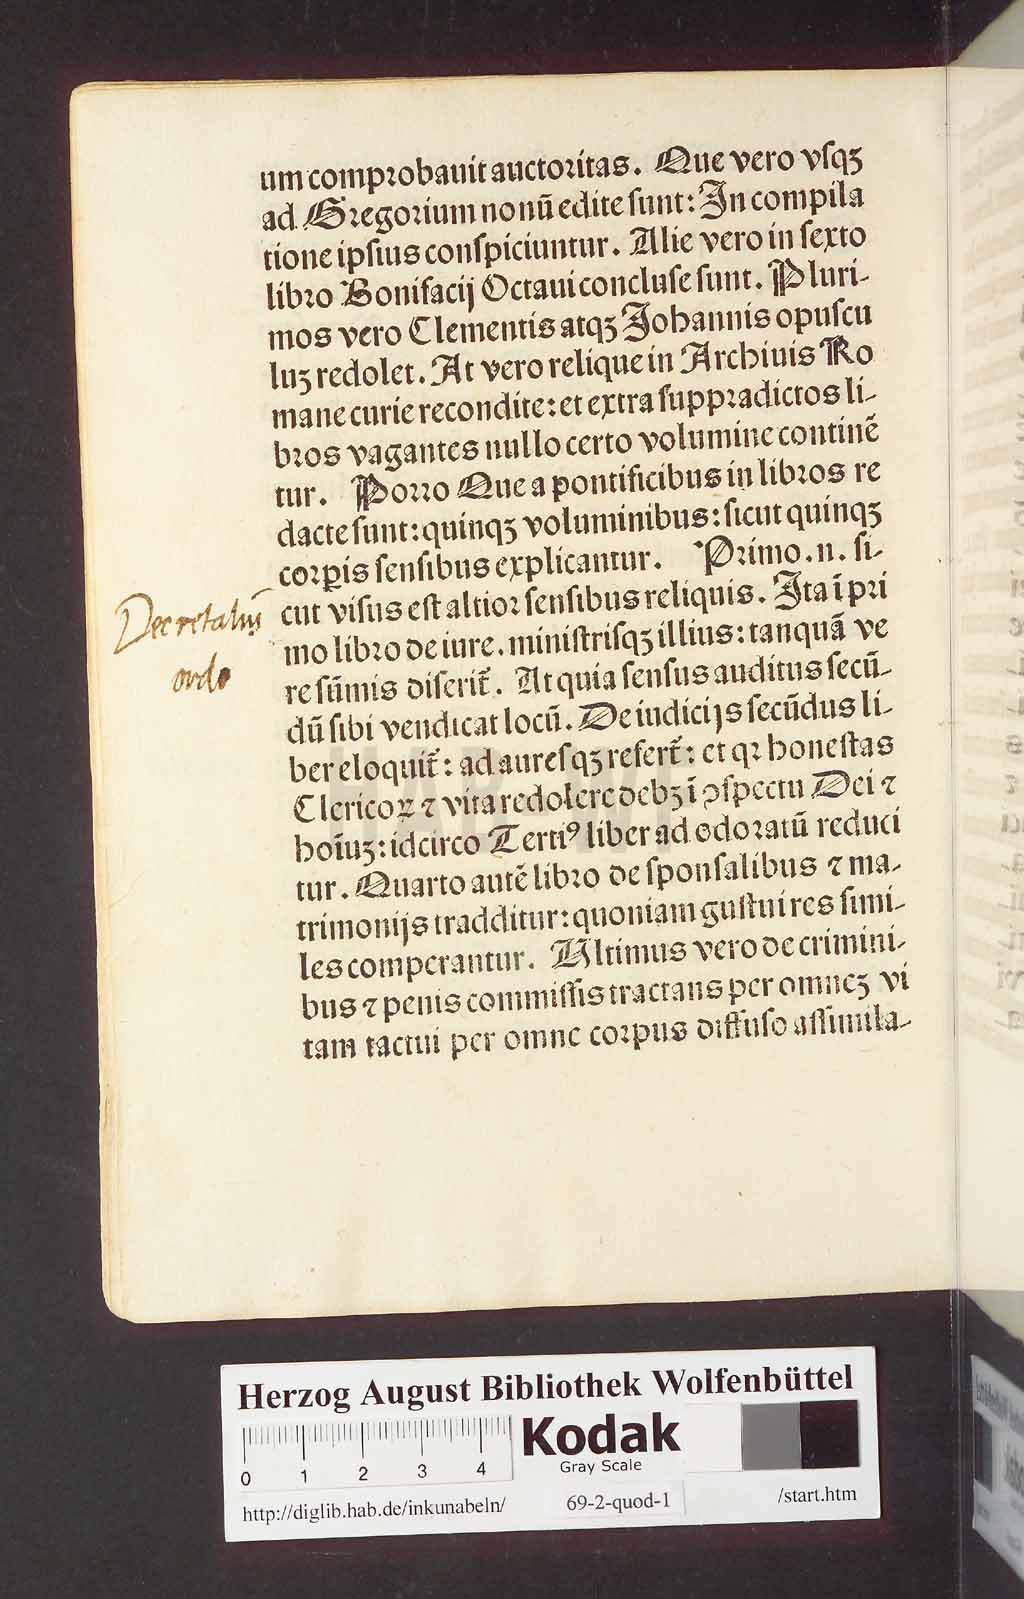 um comprobauit auctoritas. Que vero vsqꝫ
ad Gregorium nonū edite sunt: In compila
tione ipsius conspiciuntur. Alie vero in sexto
libro Bonifacij Octaui concluse sunt. Pluri-
mos vero Clementis atqꝫ Johannis opuscu
luꝫ redolet. At vero relique in Archiuis Ro
mane curie recondite: et extra suppradictos li-
bros vagantes nullo certo volumine continē
tur. Porro Que a pontificibus in libros re
dacte sunt: quinqꝫ voluminibus: sicut quinqꝫ
corꝑis sensibus explicantur. Primo .n. si-
cut visus est altior sensibus reliquis. Ita ī pri
mo libro de iure. ministrisqꝫ illius: tanquā ve
re sūmis diserit᷑. At quia sensus auditus secū-
dū sibi vendicat locū. De iudicijs secūdus li-
ber eloquit᷑: ad auresqꝫ refert᷑: et qꝛ honestas
Clericoꝝ ⁊ vita redolere debꝫ ī ꝯspectu Dei ⁊
hoīuꝫ: idcirco Terti⁹ liber ad odoratū reduci
tur. Quarto autē libro de sponsalibus ⁊ ma-
trimonijs tradditur: quoniam gustui res simi-
les comperantur. Ultimus vero de crimini-
bus ⁊ penis commissis tractans per omneꝫ vi
tam tactui per omne corpus diffuso assimila-
Decretaliū
ordo
HAB WF
Herzog August Bibliothek Wolfenbüttel
Kodak
Gray Scale
0 1 2 3 4
http://diglib.hab.de/inkunabeln/ 69-2-quod-1 /start.htm